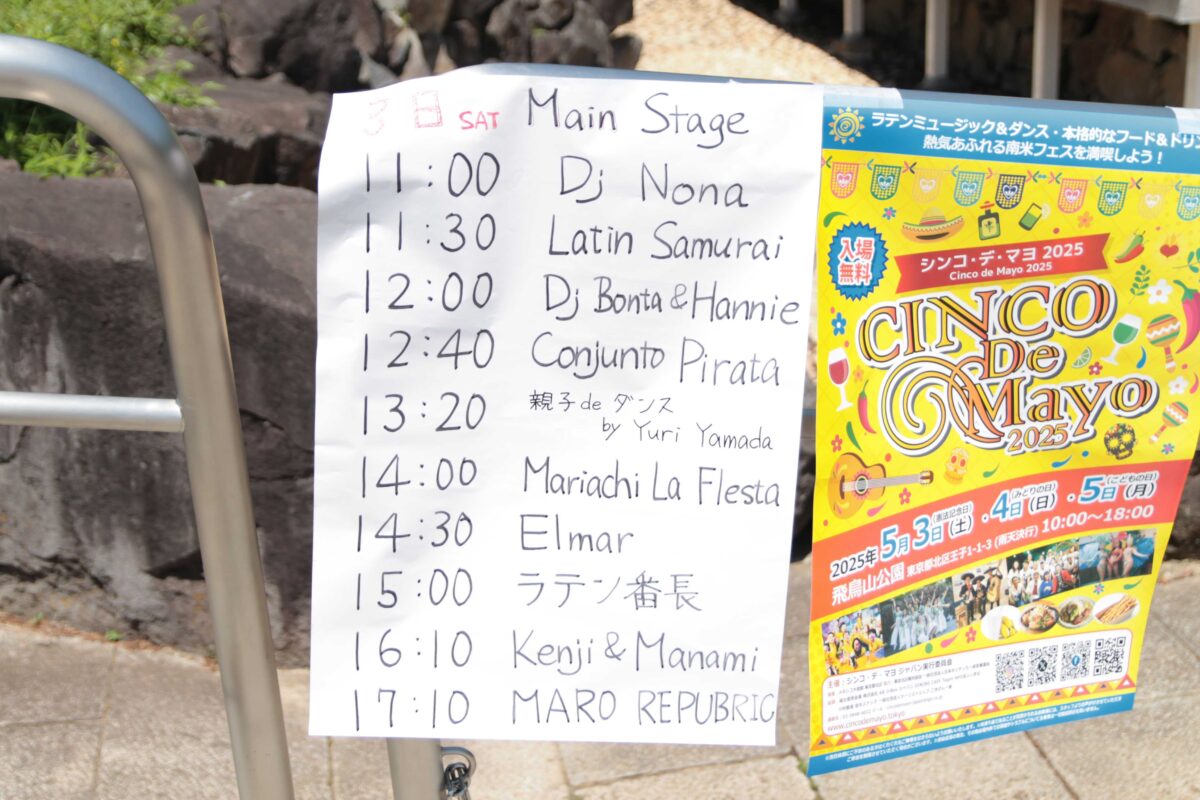 3日 SAT Main Stage
11:00 Dj Nona
11:30 Latin Samurai
12:00 Dj Bonta & Hannie
12:40 Conjunto Pirata
13:20 親子 de ダンス
by Yuri Yamada
14:00 Mariachi La FIesta
14:30 Elmar
15:00 ラテン番長
16:10 Kenji & Manami
17:10 MARO REPUBRIC
ラテンミュージック&ダンス・本格的なフード&ドリン
熱気あふれる南米フェスを満喫しよう！
入場
無料
シンコ・デ・マヨ 2025
Cinco de Mayo 2025
CINCO
De
Mayo
2025
2025年5月3日(土)(憲法記念日)・4日(日)(みどりの日)・5日(月)(こどもの日)
飛鳥山公園 東京都北区王子1-1-3 (雨天決行) 10:00〜18:00
主催：シンコ・デ・マヨ ジャパン実行委員会
www.cincodemayo.tokyo